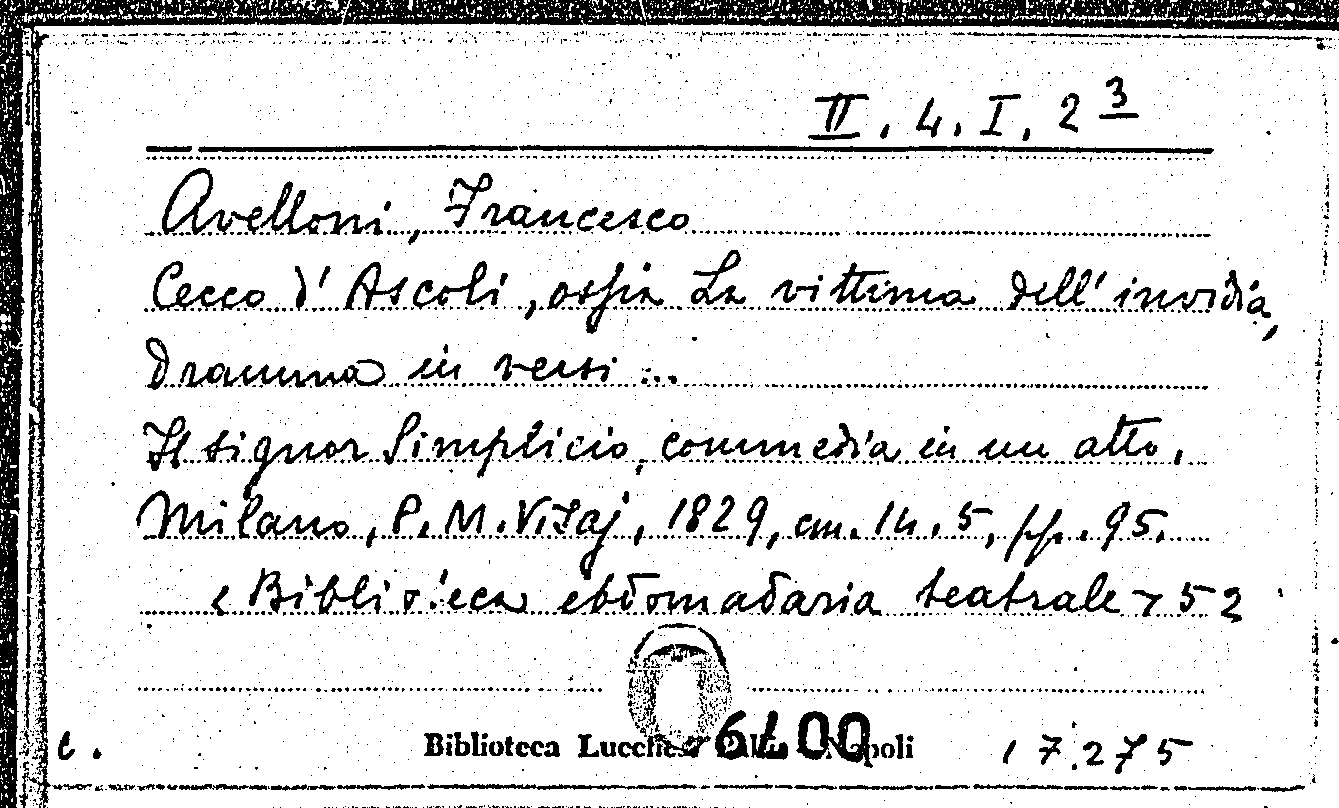 II. 4. I. 2 3
Avelloni, Francesco
Cecco d' Ascoli, ossia La vittima dell' invidia,
dramma in versi ...
Il signor Simplicio, commedia in un atto.
Milano, P. M. Visaj, 1829, cm. 14.5, pp. 95.
< Biblioteca ebdomadaria teatrale > 52
Biblioteca Lucchesi Palli Napoli
17.275
c.